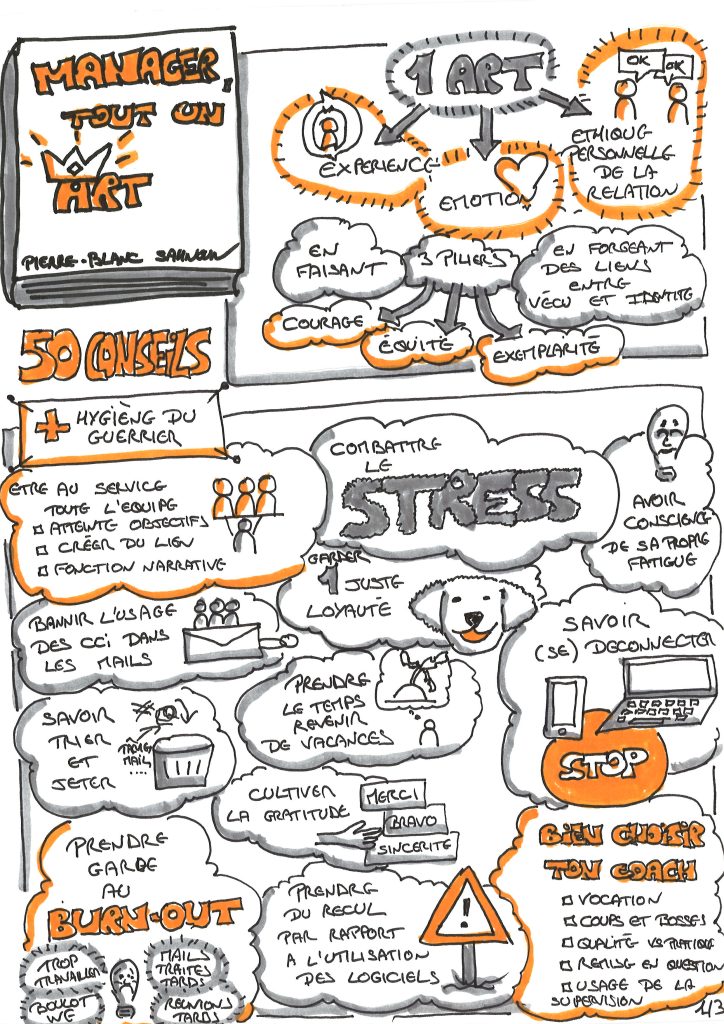 MANAGER,
TOUT UN
ART
PIERRE-BLANC SAHNOUN
1 ART
EXPERIENCE
EMOTION
OK
OK
ETHIQUE
PERSONNELLE
DE LA
RELATION
EN
FAISANT
3 PILIERS
EN FORGEANT
DES LIENS
ENTRE
VÉCU ET IDENTITÉ
COURAGE
ÉQUITÉ
EXEMPLARITÉ
50 CONSEILS
+ HYGIÈNE DU
GUERRIER
ETRE AU SERVICE
TOUTE L'EQUIPE
ATTEINTE OBJECTIFS
CRÉER DU LIEN
FONCTION NARRATIVE
COMBATTRE
LE
STRESS
AVOIR
CONSCIENCE
DE SA PROPRE
FATIGUE
GARDER
1 JUSTE
LOYAUTÉ
BANNIR L'USAGE
DES CCI DANS
LES MAILS
SAVOIR
(SE) DECONNECTER
STOP
PRENDRE
LE TEMPS
REVENIR
DE VACANCES
SAVOIR
TRIER
ET
JETER
MAIL
CULTIVER
LA GRATITUDE
MERCI
BRAVO
SINCERITE
PRENDRE
GARDE
AU
BURN-OUT
TROP
TRAVAILLER
MAILS
TRAITES
TARDS
BOULOT
WE
REUNIONS
TARDS
PRENDRE
DU RECUL
PAR RAPPORT
A L'UTILISATION
DES LOGICIELS
!
BIEN CHOISIR
TON COACH
VOCATION
COUPS ET BOSSES
QUALITÉ VS PRATIQUE
REMISE EN QUESTION
USAGE DE LA
SUPERVISION
1/3